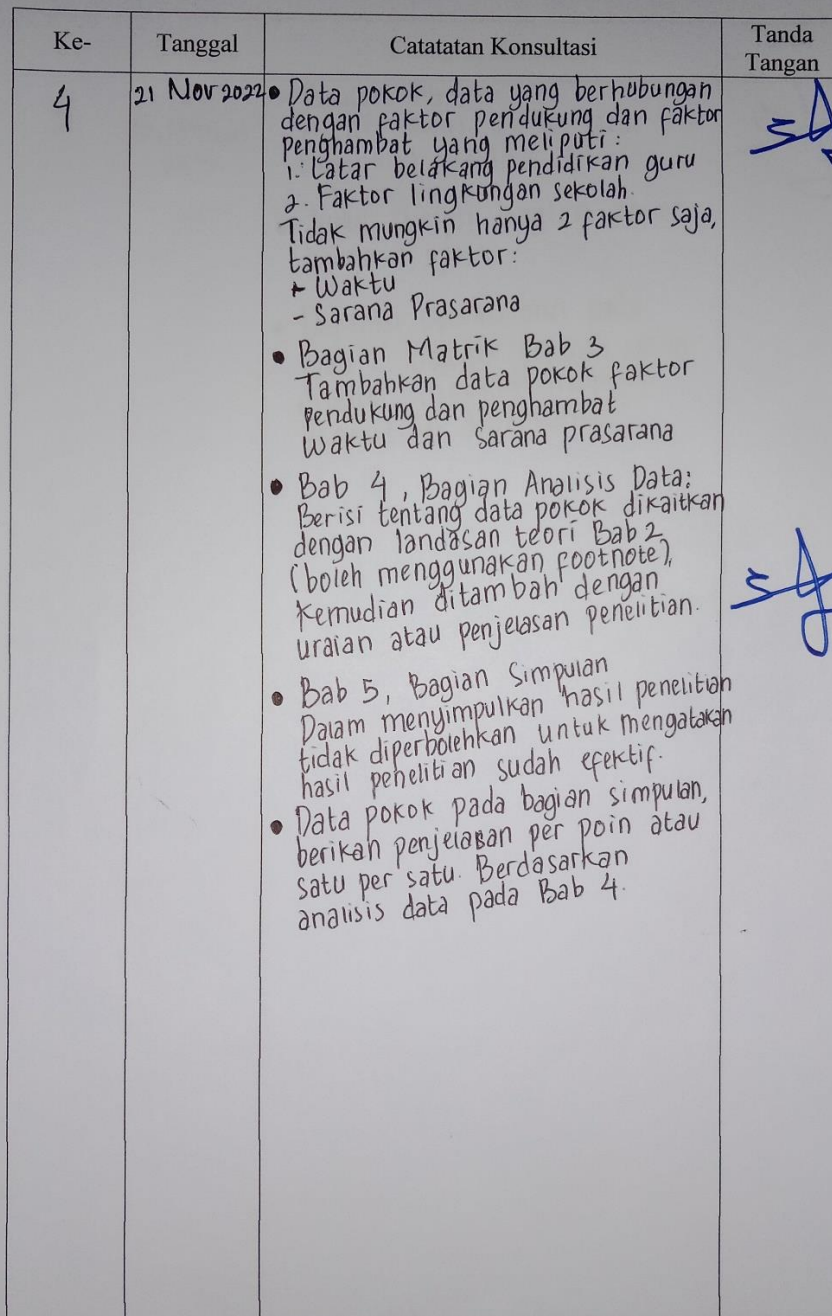 Ke- Tanggal Catatatan Konsultasi Tanda Tangan
4 21 Nov 2022 • Data pokok, data yang berhubungan
dengan faktor pendukung dan faktor
penghambat yang meliputi :
1. Latar belakang pendidikan guru
2. Faktor lingkungan sekolah.
Tidak mungkin hanya 2 faktor saja,
tambahkan faktor :
- Waktu
- Sarana Prasarana
• Bagian Matrik Bab 3
Tambahkan data pokok faktor
pendukung dan penghambat
waktu dan sarana prasarana
• Bab 4, Bagian Analisis Data:
Berisi tentang data pokok dikaitkan
dengan landasan teori Bab 2
(boleh menggunakan footnote),
kemudian ditambah dengan
uraian atau penjelasan penelitian.
• Bab 5, Bagian Simpulan
Dalam menyimpulkan hasil penelitian
tidak diperbolehkan untuk mengatakan
hasil penelitian sudah efektif.
• Data pokok pada bagian simpulan,
berikan penjelasan per poin atau
satu per satu. Berdasarkan
analisis data pada Bab 4.